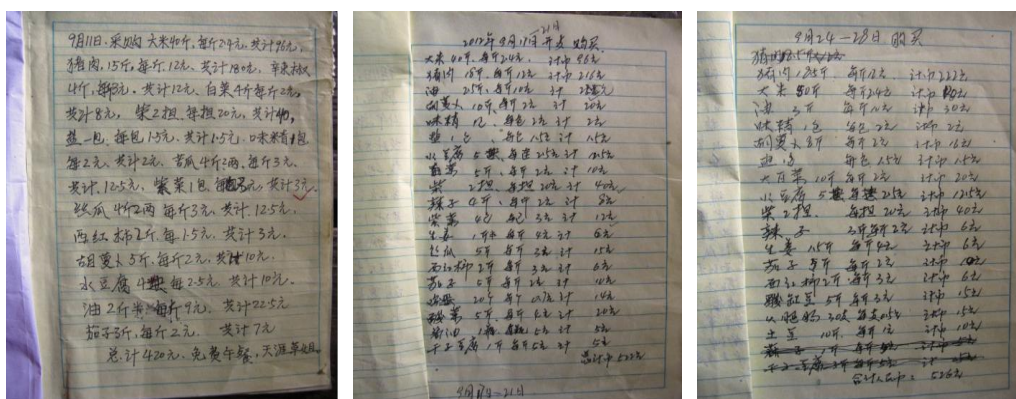 9月11日.采购 大米40斤,每斤2.4元,共计96元,
猪肉,15斤,每斤.12元、共计180元,
4斤,每3元、共计12元、白菜4斤每斤2元,
共计8元, 柴2担.每担20元,共计40,
盐一包、每包1.5元、共计1.5元、味精1包
每2元、共计2元、苦瓜4斤2两、每斤3元、
共计.12.5元, 紫菜1包、共计3元、
丝瓜4斤2两每斤3元、共计.12.5元、
西红柿2斤、每1.5元、共计3元、
胡萝卜5斤、每斤2元、共计10元、
水豆腐4 每2.5元、共计10元、
油2斤半 每斤9元、共计22.5元
茄子3斤,每斤2元、 共计7元
总计420元、免费午餐、天涯
—21日
2012年9月17日开支 购买
大米40斤、每斤2.4元 计 96元
猪肉 18斤、每斤12元 计 216元
油 25斤、每斤10元 计
胡萝卜 10斤、每斤2元 计 20元
味精 1包、每包2元 计 2元
盐 1包 每包1.5元 计 1.5元
水豆腐 5 每 2.5元 计 12.5元
5斤、每斤2元 计 10元
柴 2担、每担20元 计 40元
辣子 4斤、每斤2元 计 8元
紫菜 4包 每包3元 计 12元
生姜 1斤半 每斤4元 计 6元
丝瓜 5斤 每斤3元 计 15元
西红柿2斤 每斤3元 计 6元
茄子 5斤 每斤2元 计 10元
5斤 每斤4元 计 20元
计 5元
1斤 每斤5元 计 5元
总计币 522元
9月17日—21日
9月24—28日 购买
猪肉 18.5斤 每斤12元 计币222元
大米 50斤 每斤2.4元 计币
油 3斤 每斤10元 计币30元
味精1包 每包2元 计币2元
胡萝卜8斤 每斤2元 计币16元
盐1包 每包1.5元 计币1.5元
大白菜10斤 每斤2元 计币20元
水豆腐 5 每 2.5元 计币12.5元
柴2担、 每担20元 计币40元
辣子 3斤每斤2元 计币6元
生姜 1.5斤 每斤4元 计币6元
茄子 5斤 每斤2元 计币10元
西红柿2斤 每斤3元 计币6元
豇豆5斤 每斤3元 计币15元
计币15元
土豆 10斤、每斤1元 计币10元
合计人民币: 526元